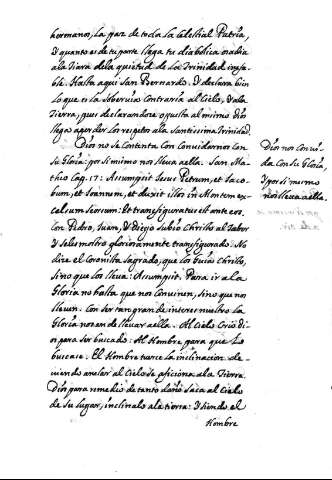 hermanos, la paz de toda la Celestial Patria,
Y quanto es de tu parte llega tu diabolica rabia
a la Tiara de la quietud de la Trinidad inefa-
ble. Hasta aqui San Bernardo. Y declara bien
lo que es la Soberuia Contraria al Cielo, Y a la
Tierra, pues declarandose opuesta al mismo Dios
llega a perder los respetos a la Santissima Trinidad.
Dios no se Contenta Con Conuidarnos Con
su Gloria: por si mismo nos lleua a ella. San Ma-
theo Cap. 17: Assumpsit Jesus Petrum, et Jaco-
bum, et Joannem, et duxit illos in Montem ex-
celsum seorsum: Et transfiguratus est ante eos.
Con Pedro, Juan, Y Diego Subió Christo al Tabor
Y se les mostro gloriosamente transfigurado. No
dize el Coronista Sagrado, que los guio Christo,
Sino que los lleua: Assumpsit. Para ir a la
Gloria no basta que nos Conviden, sino que nos
lleuen. Con ser tan grande interes nuestro la
Gloria nos han de lleuar a ella. Al Cielo Crió Di-
os para ser buscado: Al Hombre para que lo
buscase: El Hombre tuerce la inclinacion de-
uiendo anelar al Cielo se aficiona a la Tierra
Dios para remedio de tanto daño saca al Cielo
de su lugar, inclinalo a la tierra: Y siendo el
Hombre
Dios nos Conui-
da Con su Gloria,
Y por si mismo
nos lleua a ella.